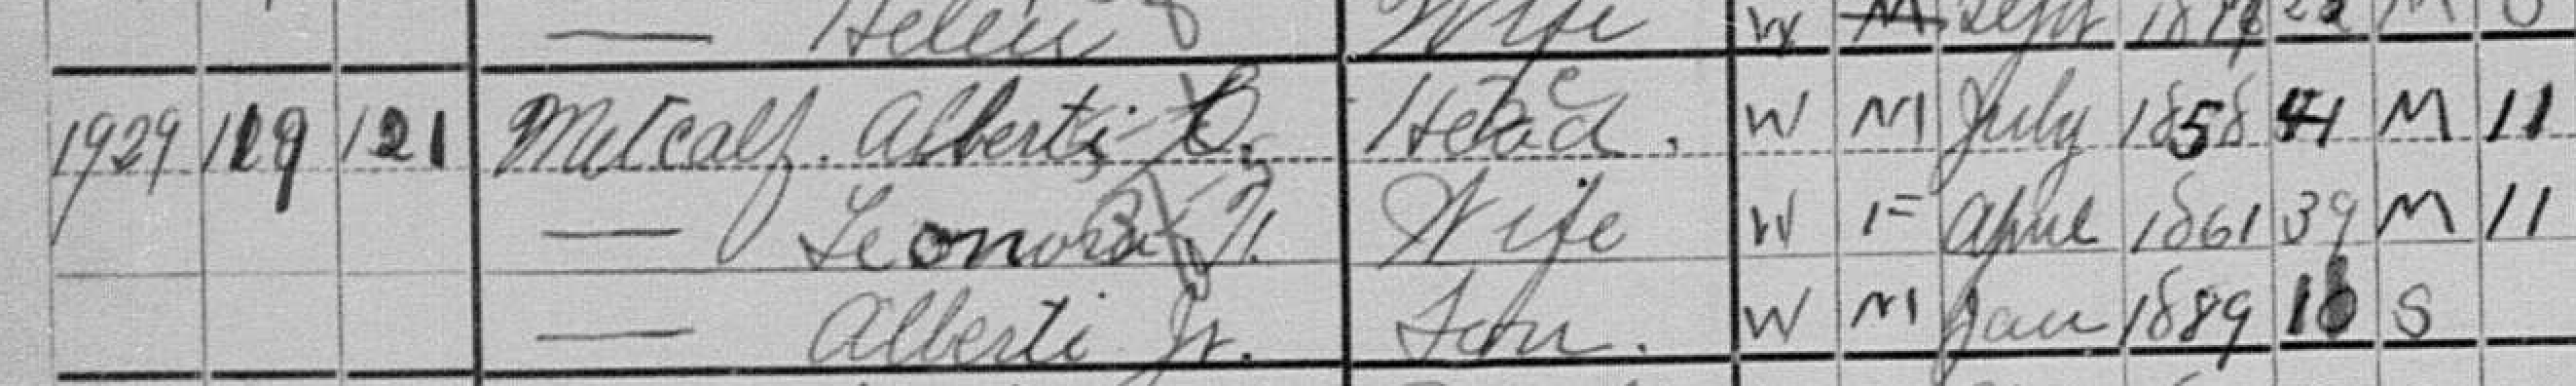 — Helen Wife W M Sept 22 M 0
1929 119 121 Metcalf. Albert B. Head. W M July 1858 41 M 11
— Leonora N. Wife W F April 1861 39 M 11
— Albert Jr. Son. W M Jan 1889 S